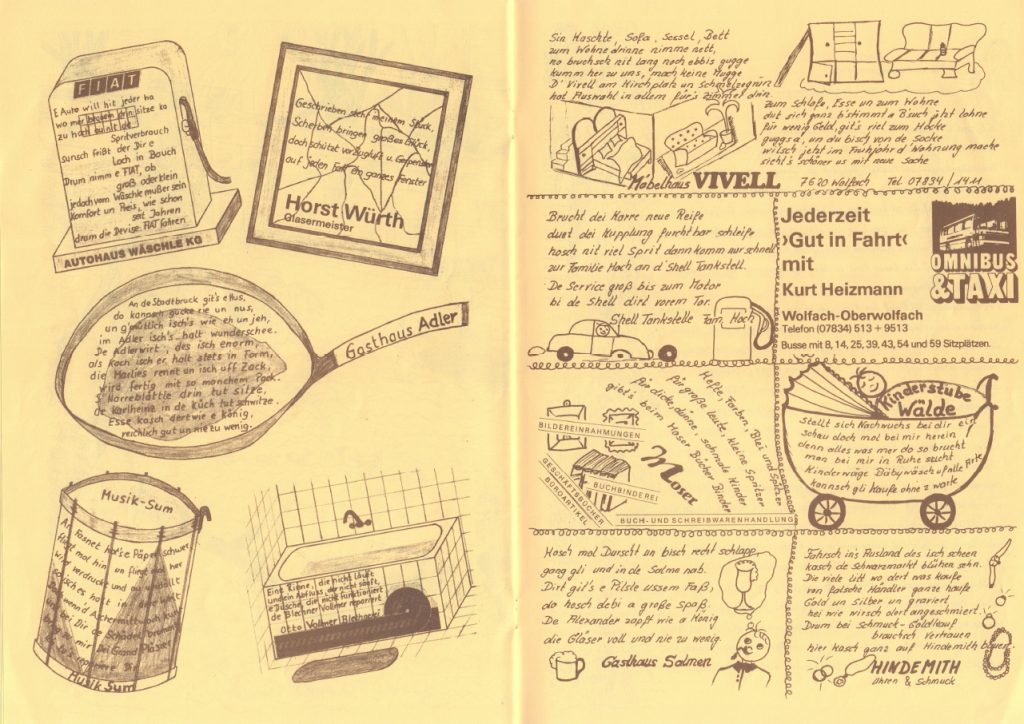 FIAT
E Auto will hit jeder ha
wo mer bequem drin sitze ka
zu hoch
Spritverbrauch
sunsch frißt der Dir e
Loch in Bauch
Drum nimm e FIAT, ob
groß oder klein
jedoch vom Wäschle mußer sein
Komfort un Preis, wie schon
seit Jahren
drum die Devise: FIAT fahren
AUTOHAUS WÄSCHLE KG
Geschrieben steht auf meinem Stück,
Scherben bringen großes Glück,
doch schützt vor
auf jeden Fall ein ganzes Fenster
Horst Würth
Glasermeister
An de Stadtbruck git's e Hus,
do kannsch gucke rie un nus,
un g'mütlich isch's wie eh un jeh,
im Adler isch's halt wunderschee.
De Adlerwirt, des isch enorm,
als Koch isch er halt stets in Form,
die Marlies rennt un isch uff Zack,
wird fertig mit so manchem Pack.
S' Narreblättle drin tut sitze,
de Karlheinz in de Küch tut schwitze.
Esse kasch dert wie e König,
reichlich gut un nie zu wenig.
Gasthaus Adler
Musik-Sum
An Fasnet
Musik Sum
Eine Rinne, die nicht läuft
und ein Abfluss, der nicht säuft,
e Dusche, die nicht funktioniert
de Blechner Vollmer repariert
Otto Vollmer Blechnerei
Sin Kaschte, Sofa, Sessel, Bett
zum Wohne drinne nimme nett,
no bruchsch nit lang noch ebbis gugge
kumm her zu uns, mach keine Mugge
D' Vivell am Kirchplatz un Schmelzegrün
hat Auswahl in allem für's Zimmer drin.
Zum Schlafe, Esse un zum Wohne
dut sich ganz b'stimmt a B'such jetzt lohne
für wenig Geld, git's viel zum Hocke
guggs a, au du bisch von de Socke
witsch jetzt im Frühjahr d' Wohnung mache
sieht's schöner us mit neue Sache
Möbelhaus VIVELL 7620 Wolfach Tel. 07834 / 1411
Brucht dei Karre neue Reife
duet dei Kupplung furchtbar schleife
hosch nit viel Sprit dann komm nur schnell
zur Familie Hoch an d' Shell Tankstell.
De Service groß bis zum Motor
bi de Shell dirt vorem Tor.
Shell Tankstelle Fam. Hoch
Jederzeit
›Gut in Fahrt‹
mit
Kurt Heizmann
Wolfach-Oberwolfach
Telefon (07834) 513 + 9513
Busse mit 8, 14, 25, 39, 43, 54 und 59 Sitzplätzen.
OMNIBUS
& TAXI
Hefte, Farben, Blei und Spitzer
für große Leute, kleine Spritzer
für dicke, dünne, schmale Kinder
gibt's beim Moser Bücher Binder
BILDEREINRAHMUNGEN
GESCHÄFTSBÜCHER
BÜROARTIKEL
BUCHBINDEREI
Moser
BUCH- UND SCHREIBWARENHANDLUNG
Kinderstube
Wälde
Stellt sich Nachwuchs bei dir ein
schau doch mal bei mir herein
denn alles was mer do so brucht
man bei mir in Ruhe sucht
Kinderwäge Babywäsch uf alle Fäll
kannsch gli kaufe ohne z'warte
Hosch mol Durscht un bisch recht schlapp,
gang gli und in de Salme nab.
Dirt git's e Pilsle ussem Faß,
do hosch debi a große Spaß.
De Alexander zapft wie a König
die Gläser voll und nie zu wenig.
Gasthaus Salmen
Fahrsch in's Ausland des isch scheen
kasch de Schwarzmarkt blühen sehn.
Die viele Litt wo dert was kaufe
von falsche Händler ganze Haufe
Gold un Silber un graviert
hei wie wirsch dert angeschmiert.
Drum bei Schmuck - Goldkauf
brauchsch Vertrauen
hier kasch ganz auf Hindemith bauen.
HINDEMITH
Uhren & Schmuck